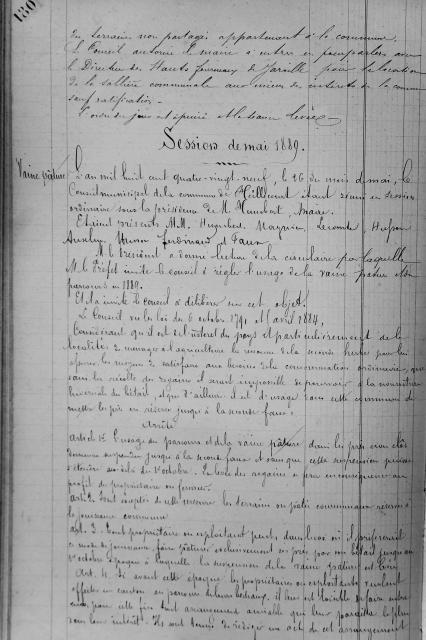 180
des terrains non partagés appartenant à la commune.
Le Conseil autorise le maire à entrer en pourparlers avec
le Directeur des Hauts fourneaux de Jarville pour la location
de la sablière communale aux mieux des intérêts de la commune
sauf ratification.
L'ordre du jour est épuisé et la séance levée
Session de mai 1889.
Vaine pâture
L'an mil huit cent quatre-vingt-neuf, le 26 du mois de mai, le
Conseil municipal de la commune de étant réuni en session
ordinaire sous la présidence de M. Maire.
Etaient présents MM.
Ferdinand et
M. le Président a donné lecture de la circulaire par laquelle
M. le Préfet invite le conseil à régler l'usage de la vaine pâture et du
parcours en 1889.
Et l'a invité le Conseil à délibérer sur cet objet.
Le Conseil vu les loi du 6 octobre 1791, et avril 1884,
Considérant qu'il est de l'intérêt du pays et particulièrement de la
localité de ménager à l'agriculture la ressource de la seconde herbe pour lui
les moyens de satisfaire aux besoins de la consommation ordinaire, que
sans la récolte des regains il serait impossible de pourvoir à la nourriture
hivernale du bétail, et que d'ailleurs il est d'usage dans cette commune de
mettre les prés en réserve jusqu'à la seconde faux.
Arrête
Article 1er L'usage du parcours et de la vaine pâture dans les prés non clos
demeure suspendu jusqu'à la seconde faux et sans que cette suspension puisse
s'étendre au delà du 1er octobre. La récolte des regains a lieu en conséquence au
profit du propriétaire ou fermier.
Art. 2. Sont exceptés de cette réserve les terrains ou patis communaux réservés à
la jouissance commune
Art. 3. Tout propriétaire ou exploitant peut, dans le cas où il préférerait
ce mode de jouissance, faire pâturer exclusivement ses prés par son bétail jusqu'au
1er octobre époque à laquelle la suspension de la vaine pâture est
Art. 4. Si avant cette époque les propriétaires ou exploitants veulent
en canton au parcours de leurs bestiaux, il leur est loisible de faire entre
eux, pour cette fin tout arrangement amiable qui leur paraîtra le plus
dans leur intérêt. Ils sont tenus de rédiger un acte de cet arrangement